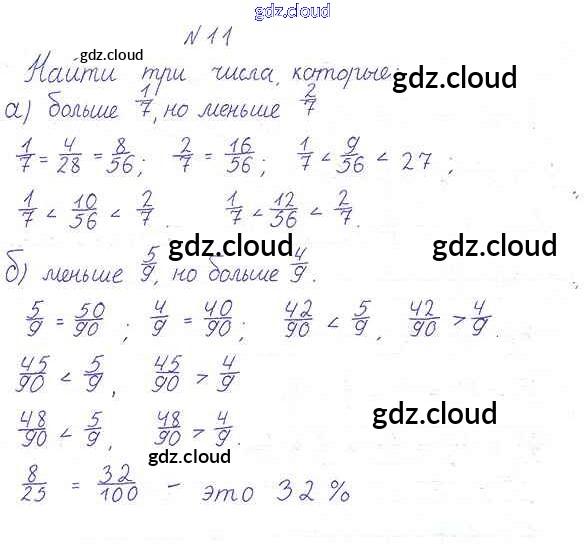 gdz.cloud
N 11
gdz.cloud
Найти три числа, которые: gdz.cloud
а) больше 1/7, но меньше 2/7
1/7 = 4/28 = 8/56; 2/7 = 16/56; 1/7 < 9/56 < 27;
1/7 < 10/56 < 2/7. 1/7 < 12/56 < 2/7.
gdz.cloud gdz.cloud
б) меньше 5/9, но больше 4/9.
5/9 = 50/90; 4/9 = 40/90; 42/90 < 5/9, 42/90 > 4/9.
45/90 < 5/9, 45/90 > 4/9
48/90 < 5/9, 48/90 > 4/9.
gdz.cloud
gdz.cloud
8/25 = 32/100 - это 32 %